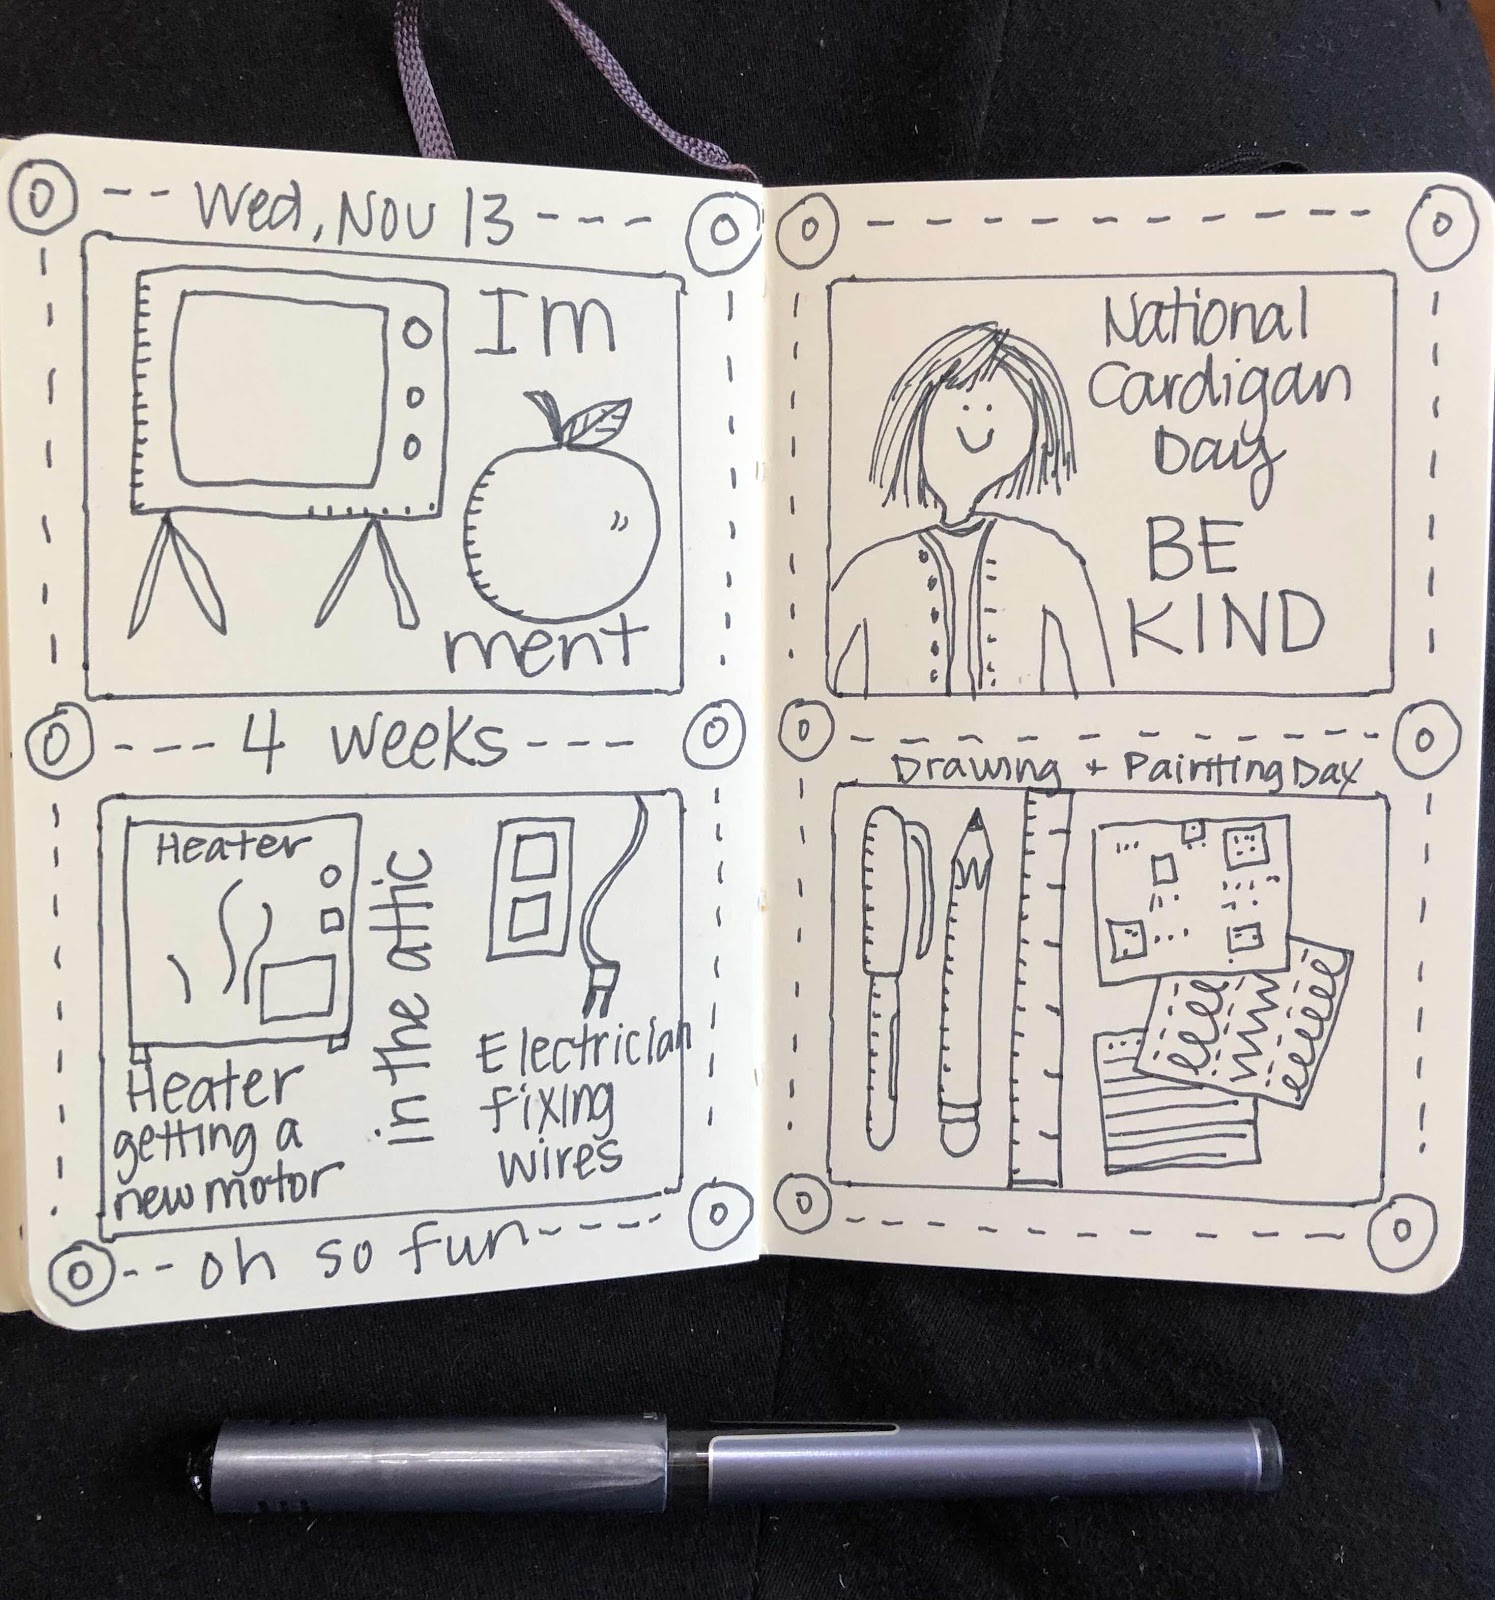 Wed, Nov 13
Im
ment
4 weeks
Heater
Heater
getting a
new motor
in the attic
Electrician
fixing
wires
oh so fun
National
Cardigan
Day
BE
KIND
Drawing + Painting Day